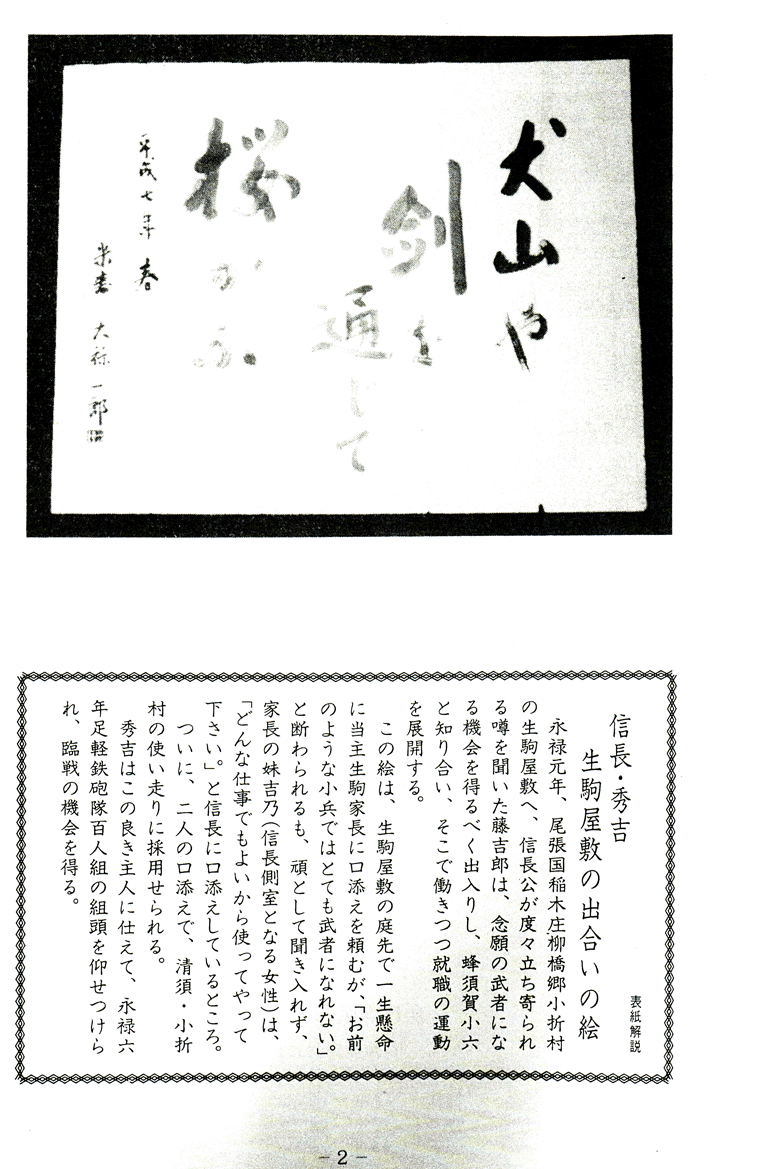 犬山や
剣を
通じて
桜かな
平成七年 春
米寿 大祢一郎
表紙解説
信長・秀吉
生駒屋敷の出合いの絵
永禄元年、尾張国稲木庄柳橋郷小折村
の生駒屋敷へ、信長公が度々立ち寄られ
る噂を聞いた藤吉郎は、念願の武者にな
る機会を得るべく出入りし、蜂須賀小六
と知り合い、そこで働きつつ就職の運動
を展開する。
この絵は、生駒屋敷の庭先で一生懸命
に当主生駒家長に口添えを頼むが、「お前
のような小兵ではとても武者になれない。」
と断わられるも、頑として聞き入れず、
家長の妹吉乃(信長側室となる女性)は、
「どんな仕事でもよいから使ってやって
下さい。」と信長に口添えしているところ。
ついに、二人の口添えで、清須・小折
村の使い走りに採用せられる。
秀吉はこの良き主人に仕えて、永禄六
年足軽鉄砲隊百人組の組頭を仰せつけら
れ、臨戦の機会を得る。
－2－